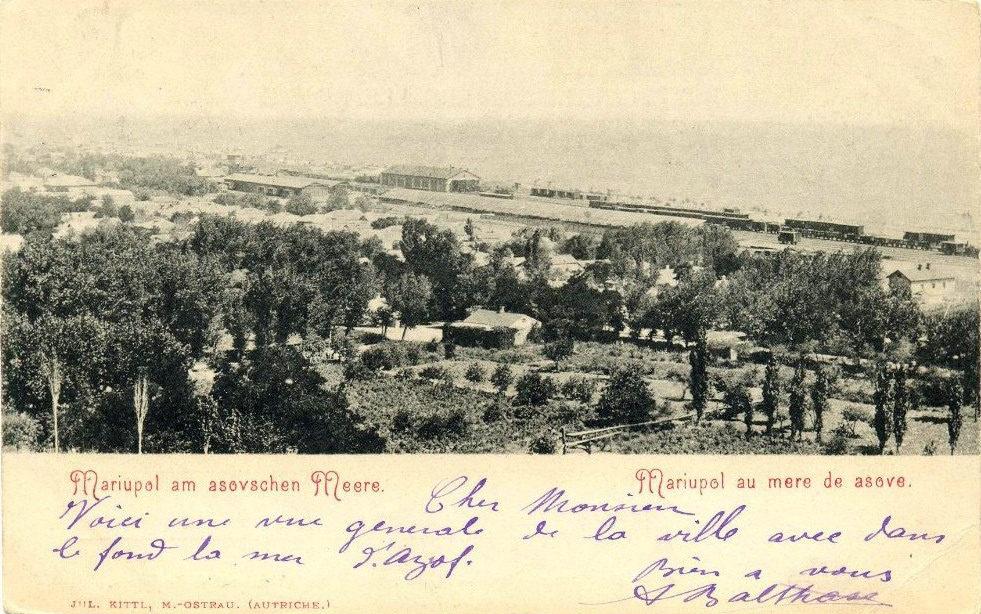 Mariupol am asovschen Meere.
Mariupol au mere de asove.
Cher Monsieur
Voici une vue generale de la ville avec dans
le fond la mer d'Azof.
Bien a vous
A Balthase
JUL. KITTL, M.-OSTRAU. (AUTRICHE.)